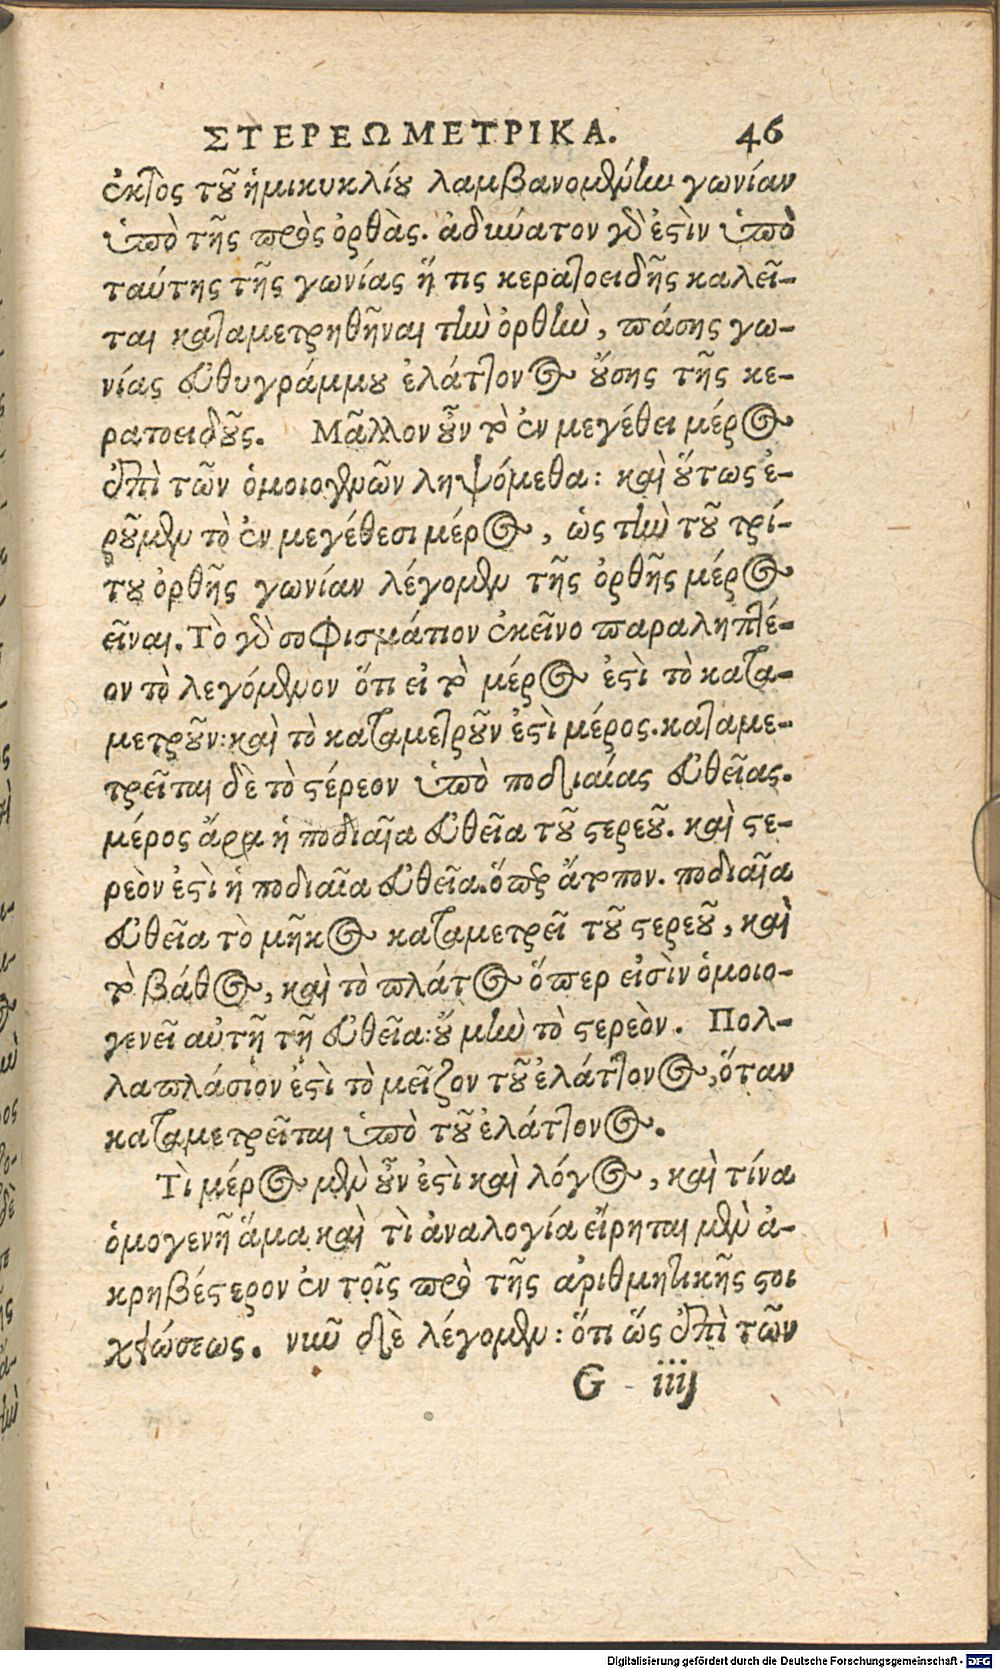 ΣΤΕΡΕΩΜΕΤΡΙΚΑ. 46
ἐκτὸς τοῦ ἡμικυκλίου λαμβανομένην γωνίαν
ὑπὸ τῆς πρὸς ὀρθὰς. ἀδύνατον γὸ ἐστὶν ὑπὸ
ταύτης τῆς γωνίας ἥ τις κερατοειδῆς καλεῖ-
ται καταμετρηθῆναι τὴν ὀρθὴν, πάσης γω-
νίας εὐθυγράμμου ἐλάττονος οὔσης τῆς κε-
ρατοειδοῦς. Μᾶλλον οὖν τὸ ἐν μεγέθει μέρος
ἐπὶ τῶν ὁμοιογενῶν ληψόμεθα: καὶ οὕτως ἐ-
ροῦμεν τὸ ἐν μεγέθεσι μέρος, ὡς τὴν τοῦ τρί-
του ὀρθῆς γωνίαν λέγομεν τῆς ὀρθῆς μέρος
εἶναι. Τὸ γὸ σοφισμάτιον ἐκεῖνο παραληπτέ-
ον τὸ λεγόμενον ὅτι εἰ τὸ μέρος ἐστὶ τὸ κατα-
μετροῦν: καὶ τὸ καταμετροῦν ἐστὶ μέρος. καταμε-
τρεῖται δὲ τὸ στέρεον ὑπὸ ποδιαίας εὐθεῖας.
μέρος ἄρα ἡ ποδιαῖα εὐθεῖα τοῦ στερεοῦ. καὶ στε-
ρεὸν ἐστὶ ἡ ποδιαῖα εὐθεῖα. ὅπερ ἄτοπον. ποδιαῖα
εὐθεῖα τὸ μῆκος καταμετρεῖ τοῦ στερεοῦ, καὶ
τὸ βάθος, καὶ τὸ πλάτος ὅπερ εἰσὶν ὁμοιο-
γενεῖ αὐτῇ τῇ εὐθεῖα: οὐ μὴν τὸ στερεὸν. Πολ-
λαπλάσιον ἐστὶ τὸ μεῖζον τοῦ ἐλάττονος, ὅταν
καταμετρεῖται ὑπὸ τοῦ ἐλάττονος.
Τὶ μέρος μὲν οὖν ἐστὶ καὶ λόγος, καὶ τίνα
ὁμογενῆ ἅμα καὶ τὶ ἀναλογία εἴρηται μὲν ἀ-
κρηβέστερον ἐν τοῖς πρὸ τῆς ἀριθμητικῆς στοι
χειώσεως. νυῦ δὲ λέγομεν: ὅτι ὥς ἐπὶ τῶν
G iiij
Digitalisierung gefördert durch die Deutsche Forschungsgemeinschaft - DFG